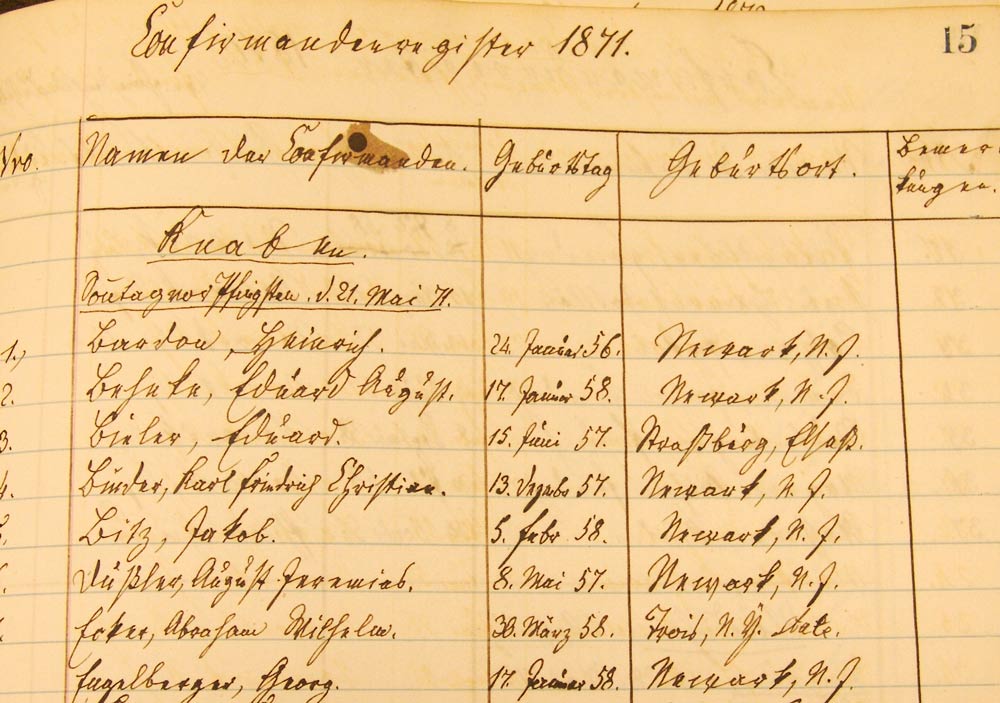 Confirmandenregister 1871.
15
Nro.
Namen der Confirmanden.
Geburtstag
Geburtsort.
Bemer-
kungen.
Knaben.
Sontag vor Pfingsten. d. 21. Mai 71.
1.) Bardon, Heinrich. 24. Januar 56. Newark, N. J.
2. Behnke, Eduard August. 17. Januar 58. Newark, N. J.
3. Bieler, Eduard. 15. Juni 57. Straßburg, Elsaß.
4. Binder, Karl Friedrich Christian. 13. Dezembr 57. Newark, N. J.
Bitz, Jakob. 5. Febr 58. Newark, N. J.
Düßler, August Jeremias. 8. Mai 57. Newark, N. J.
Ecker, Abraham Wilhelm. 30. März 58. N. Y. State.
Engelberger, Georg. 17. Januar 58. Newark, N. J.